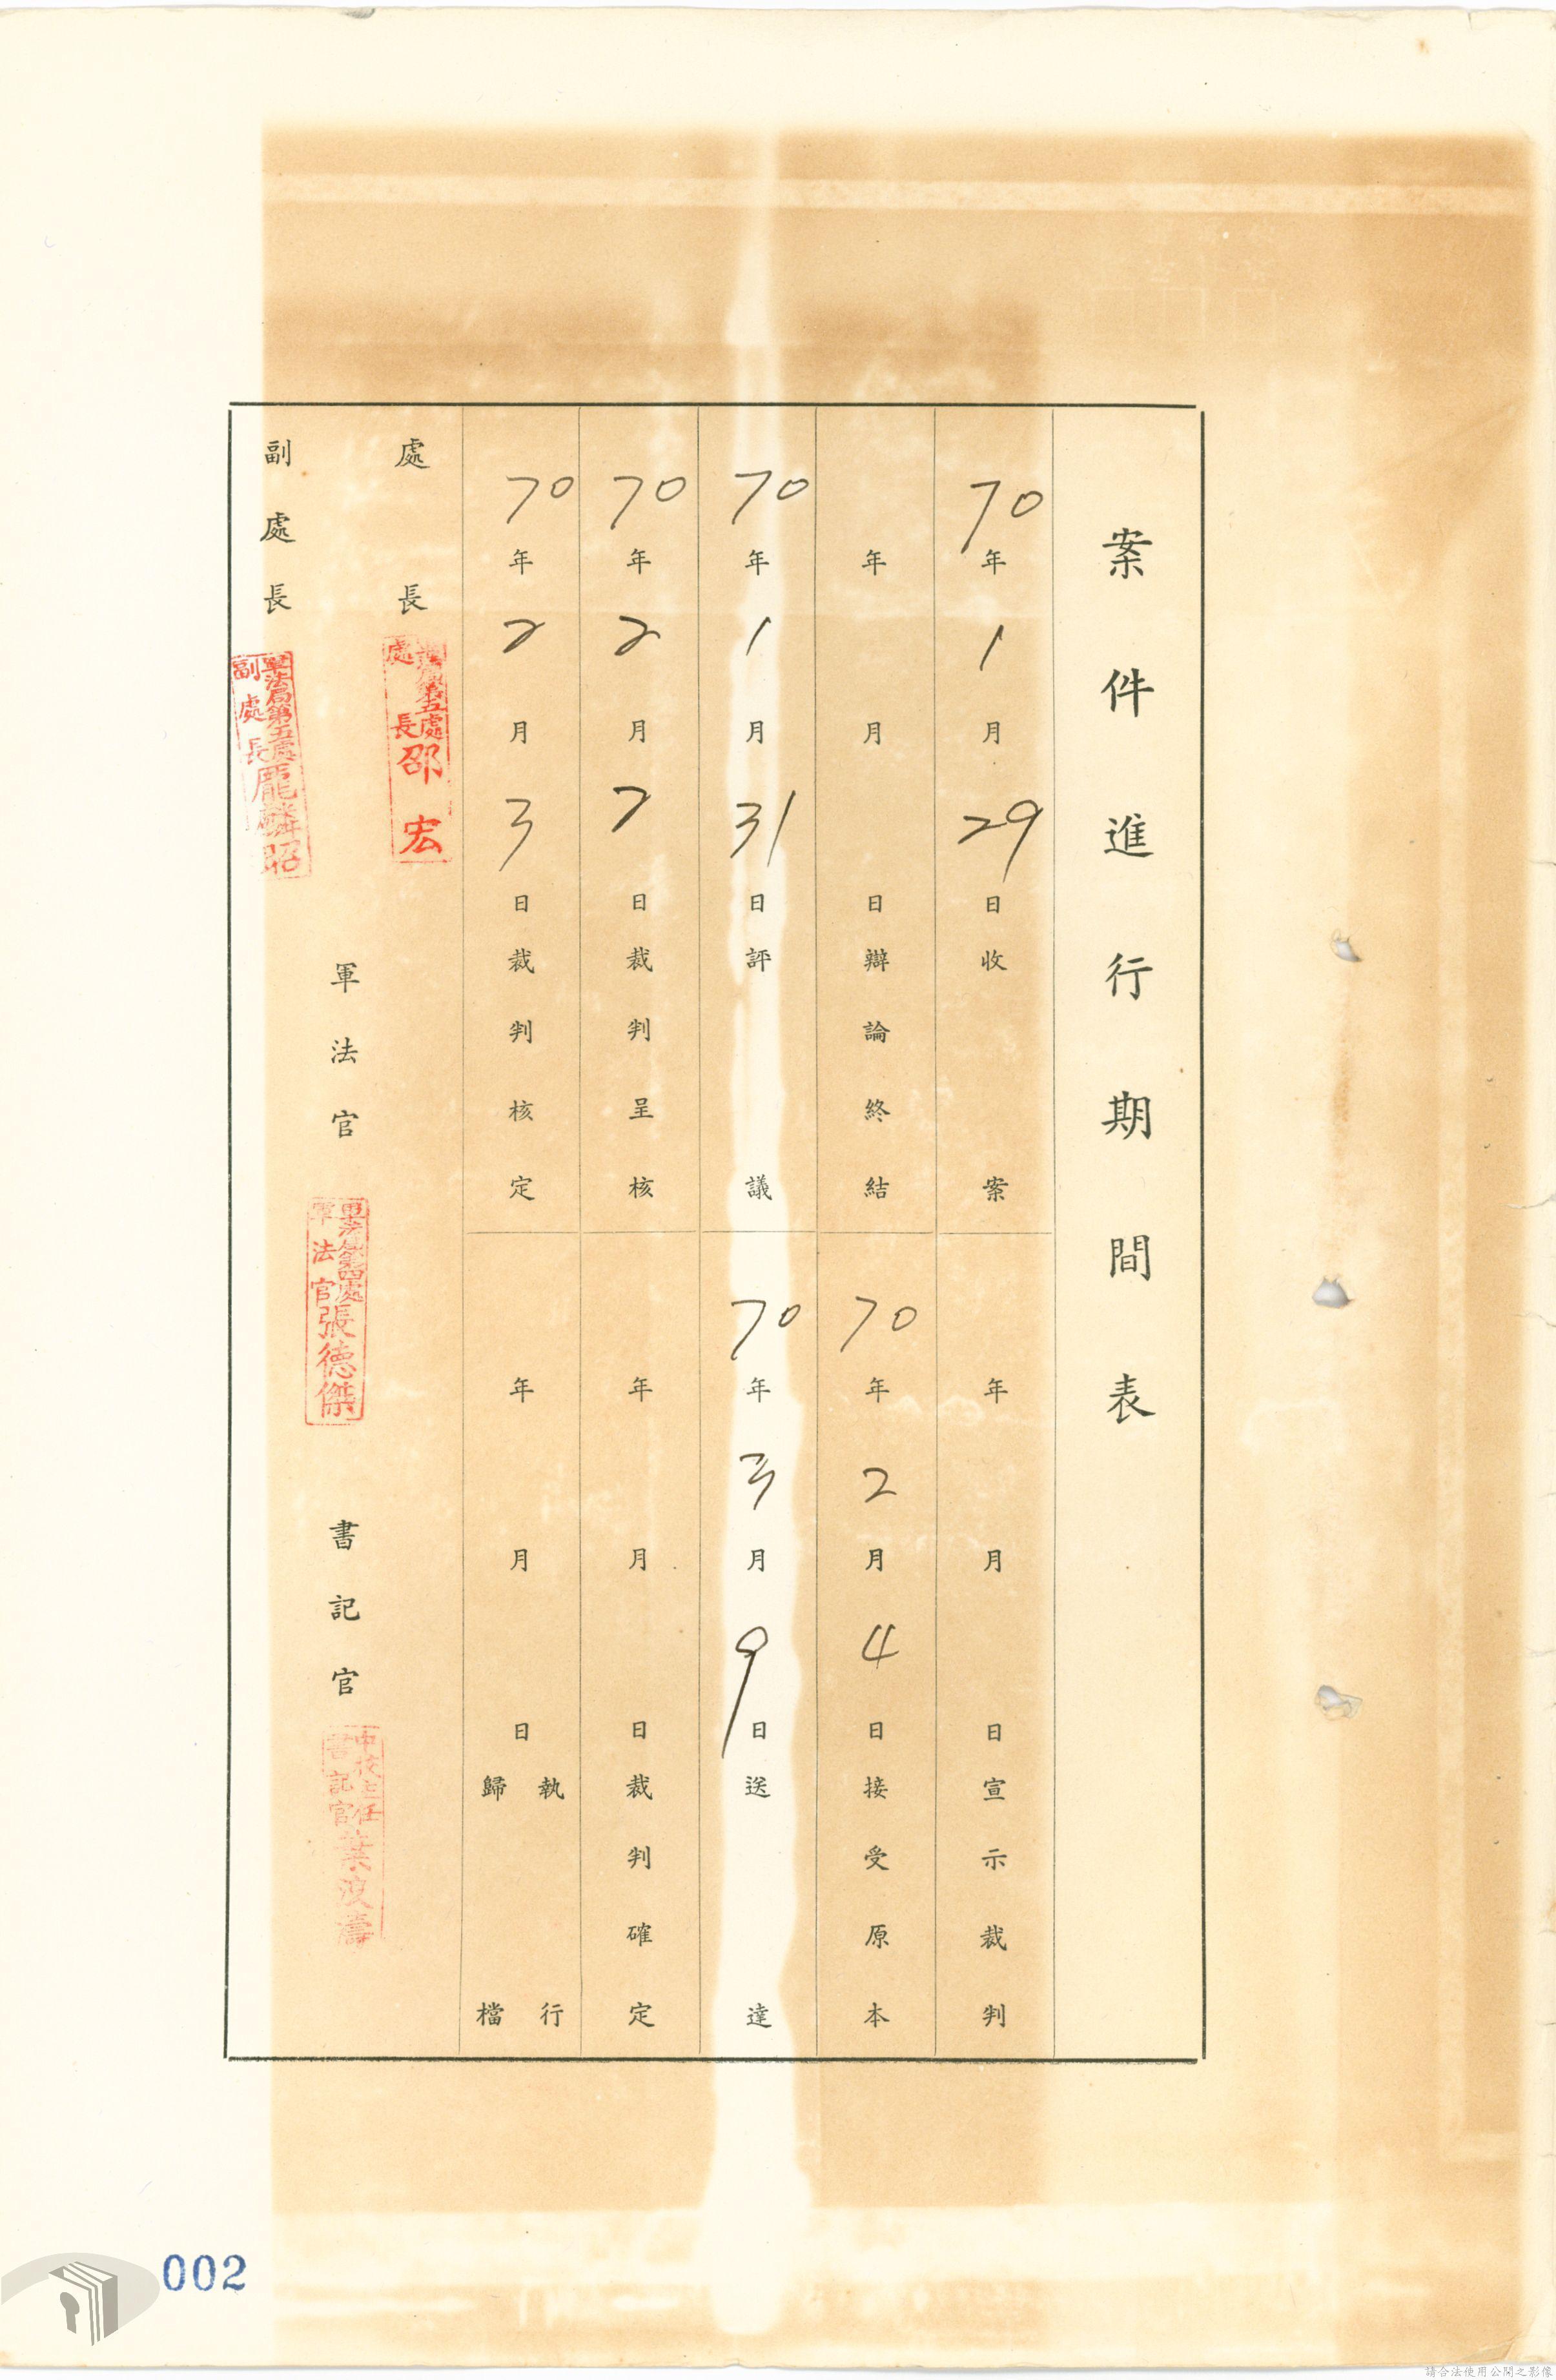 案件進行期間表
70年1月29日收案
年月日宣示裁判
年月日辯論終結
70年2月4日接受原本
70年1月31日評議
70年3月9日送達
70年2月2日裁判呈核
年月日裁判確定
70年2月3日裁判核定
年月日執行歸檔
處長
處第五處
處長邵宏
軍法官
軍法局第四處
軍法官張德傑
書記官
中校主任
書記官葉波濤
副處長
軍法局第五處
副處長龎麟昭
002
請合法使用公開之影像